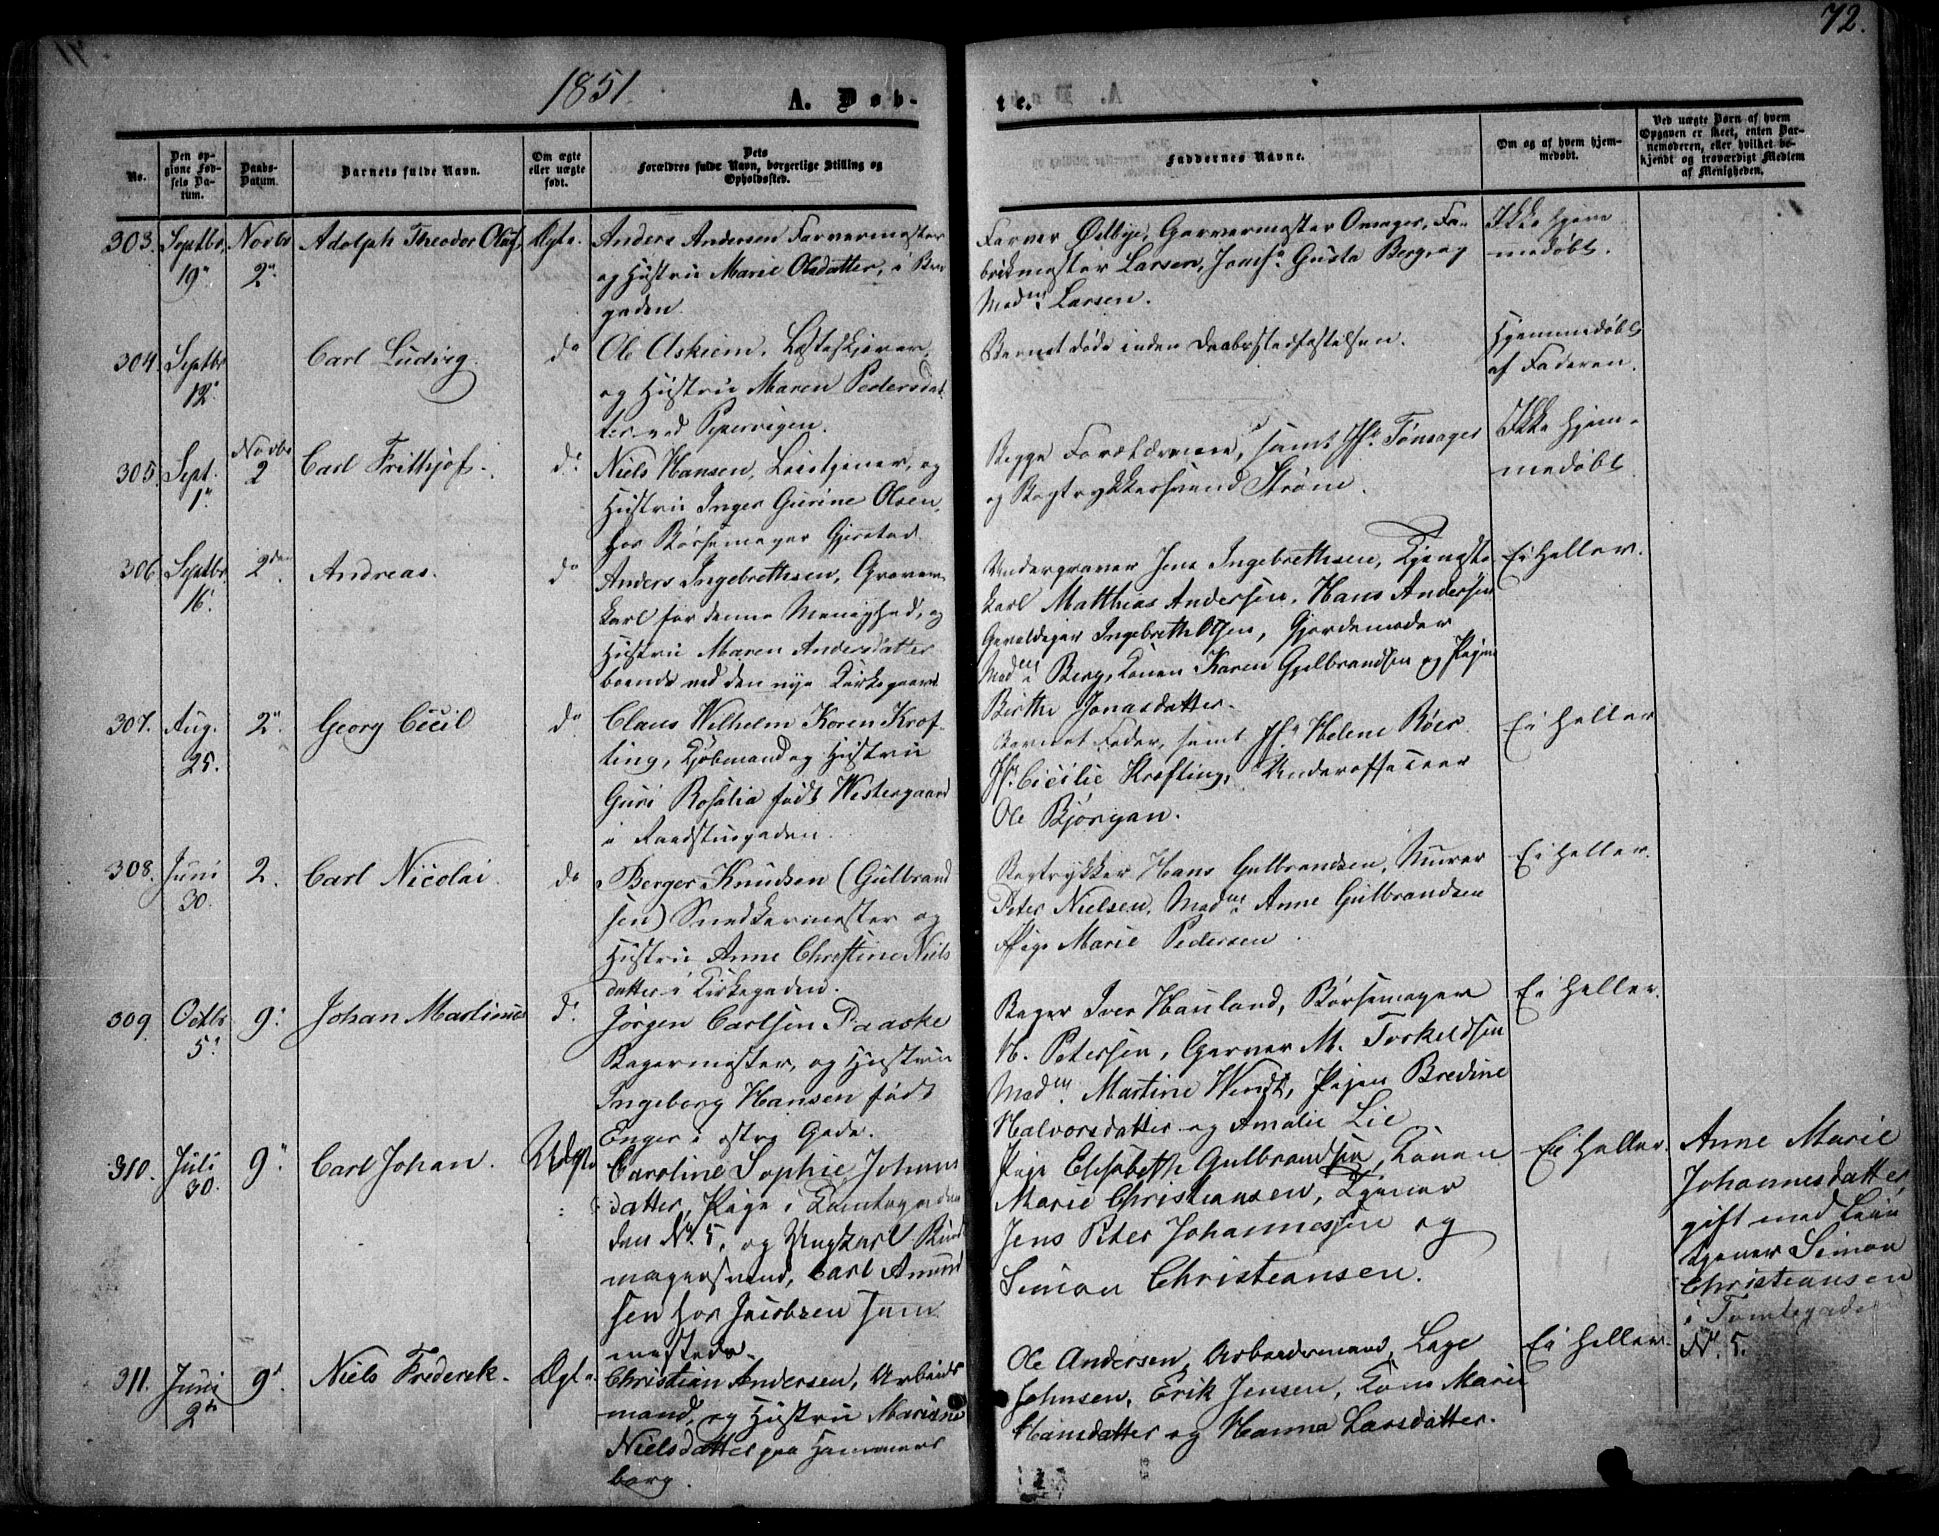 72.
1851.
A. Døb-
te.
No.
Den op-
givne Fød-
sels Da-
tum.
Daabs-
Datum.
Barnets fulde Navn.
Om ægte
eller uægte
født.
Dets
Forældres fulde Navn, borgerlige Stilling og
Opholdssted.
Faddernes Navne.
Om og af hvem hjem-
medøbt.
Ved uægte Børn af hvem
Opgaven er skeet, enten Bar-
nemoderen, eller hvilket be-
kjendt og troværdigt Medlem
af Menigheden.
303. Septbr. 19" Novbr 2" Adolph Theodor Oluf. Ægte.
Anders Andersen Farvermester
og Hustru Marie Olsdatter, i
gaden.
Farver Ødbye, Garvermester Onsager, Fa-
brikmester Larsen, Gusta Berg, og
Mad. Larsen.
Ikke hjem-
medøbt.
304. Septbr 12" Carl Ludvig. do
Ole Askiem,
og Hustru Maren Pedersdat-
ter ved Pipervigen.
Barnet døde inden Daabsstadfæstelsen.
Hjemmedøbt
af Faderen.
305. Sept. 1" Novbr 2 Carl Frithjof. do
Niels Hansen, og
Hustru Inger Gurine Olsen,
hos Børsemager Gjerstad
Begge Forældrene, samt Jfr. Tønsager
og Bogtrykkersvend Strøm.
Ikke hjem-
medøbt.
306. Septbr. 16" 2den Andreas. do
Anders Ingebrethsen, Graver-
karl for denne Menighed, og
Hustru Maren Andersdatter
boende ved den nye Kirkegaard
Undergraver Jens Ingebrethsen, Tjeneste-
karl Matthias Andersen, Hans Andersen
Ingebreth Olsen, Gjordemoder
Mad. Berg, Konen Karen Gulbrandsen og Pigen
Birthe Jonasdatter.
Ei heller.
307. Aug. 25. 2" Georg Cecil do
Claus Wilhelm Koren Kref-
ting, Kjøbmand og Hustru
Guri Rosalia født Westergaard
i Raadstugaden.
Barnet Fader, samt Jfr. Helene Røer
Jfr. Cicilie Krefting, Underofficeer
Ole Bjørgan.
Ei heller
308. Juni 30. 2. Carl Nicolai. do
Berger Knudsen (Gulbrand-
sen) Snedkermester og
Hustru Anne Christine Niels-
datter i Kirkegaden.
Bogtrykker Hans Gulbrandsen, Murer
Peter Nielsen, Mad. Anne Gulbrandsen
Pige Marie Pedersen.
Ei heller.
309. Octbr 5" 9" Johan Martinus do
Jørgen Carlsen Paaske
Bagermester, og Hustru
Ingeborg Hansen født
Enger i østre Gade.
Bager Iver Hauland, Børsemager
H. Petersen, Garver M. Torkeldsen
Mad. Martine Wendt, Pigen Bredine
Halvorsdatter og Amalie Lie
Ei heller.
310. Juli 30. 9" Carl Johan. Uægte
Caroline Sophie Johans-
datter, Pige i Tomtega-
den No. 5, og Ungkarl Bundt-
magersvend, Carl Amund-
sen hos Jacobsen sam-
mesteds.
Pige Elisabeth Gulbrandsen, Konen
Marie Christiansen, Tjener
Jens Peter Johannessen og
Simon Christiansen.
Ei heller.
Anne Marie
Johannesdatter
gift med Leie-
tjener Simon
Christiansen
i Tomtegaden
No. 5.
311. Juni 2" 9" Niels Frederik. Ægte
Christian Andersen, Arbeids-
mand, og Hustru Mariane
Nielsdatter paa Hammers-
borg.
Ole Andersen, Arbeidsmand, Lage
Johnsen, Erik Jensen, Kone Marie
Hansdatter og Hanna Larsdatter.
Ei heller.